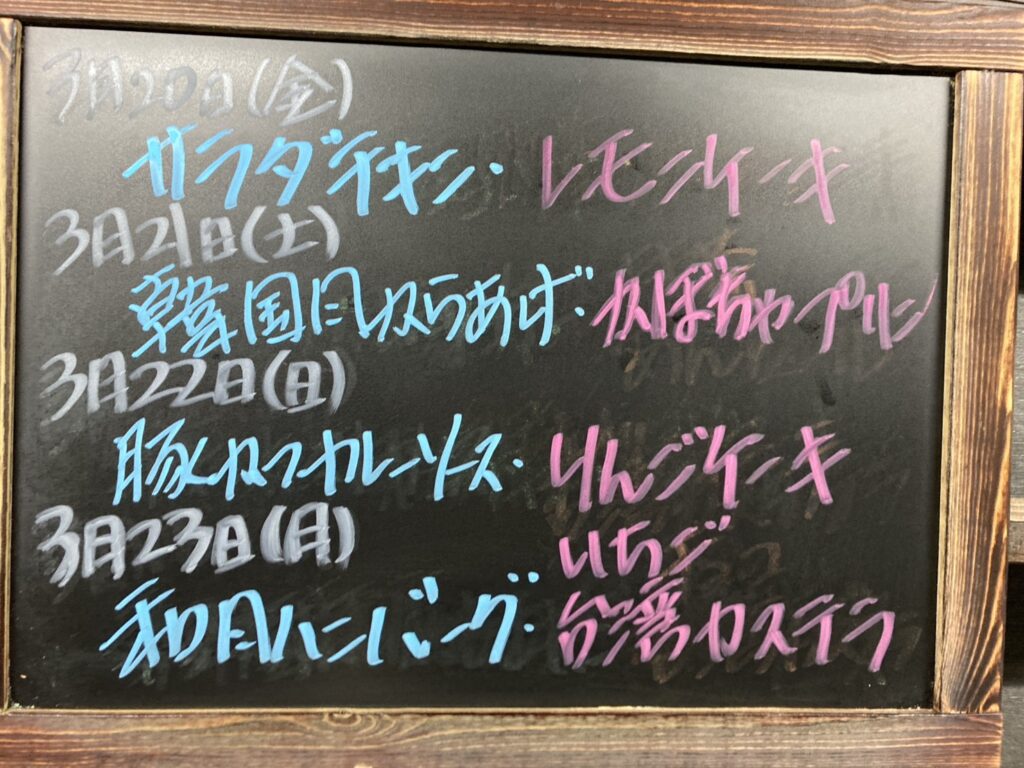 3月20日(金)
サラダチキン・レモンケーキ
3月21日(土)
韓国風からあげ・かぼちゃプリン
3月22日(日)
豚カツカレーソース・りんごケーキ
3月23日(月)
いちご
和風ハンバーグ・台湾カステラ